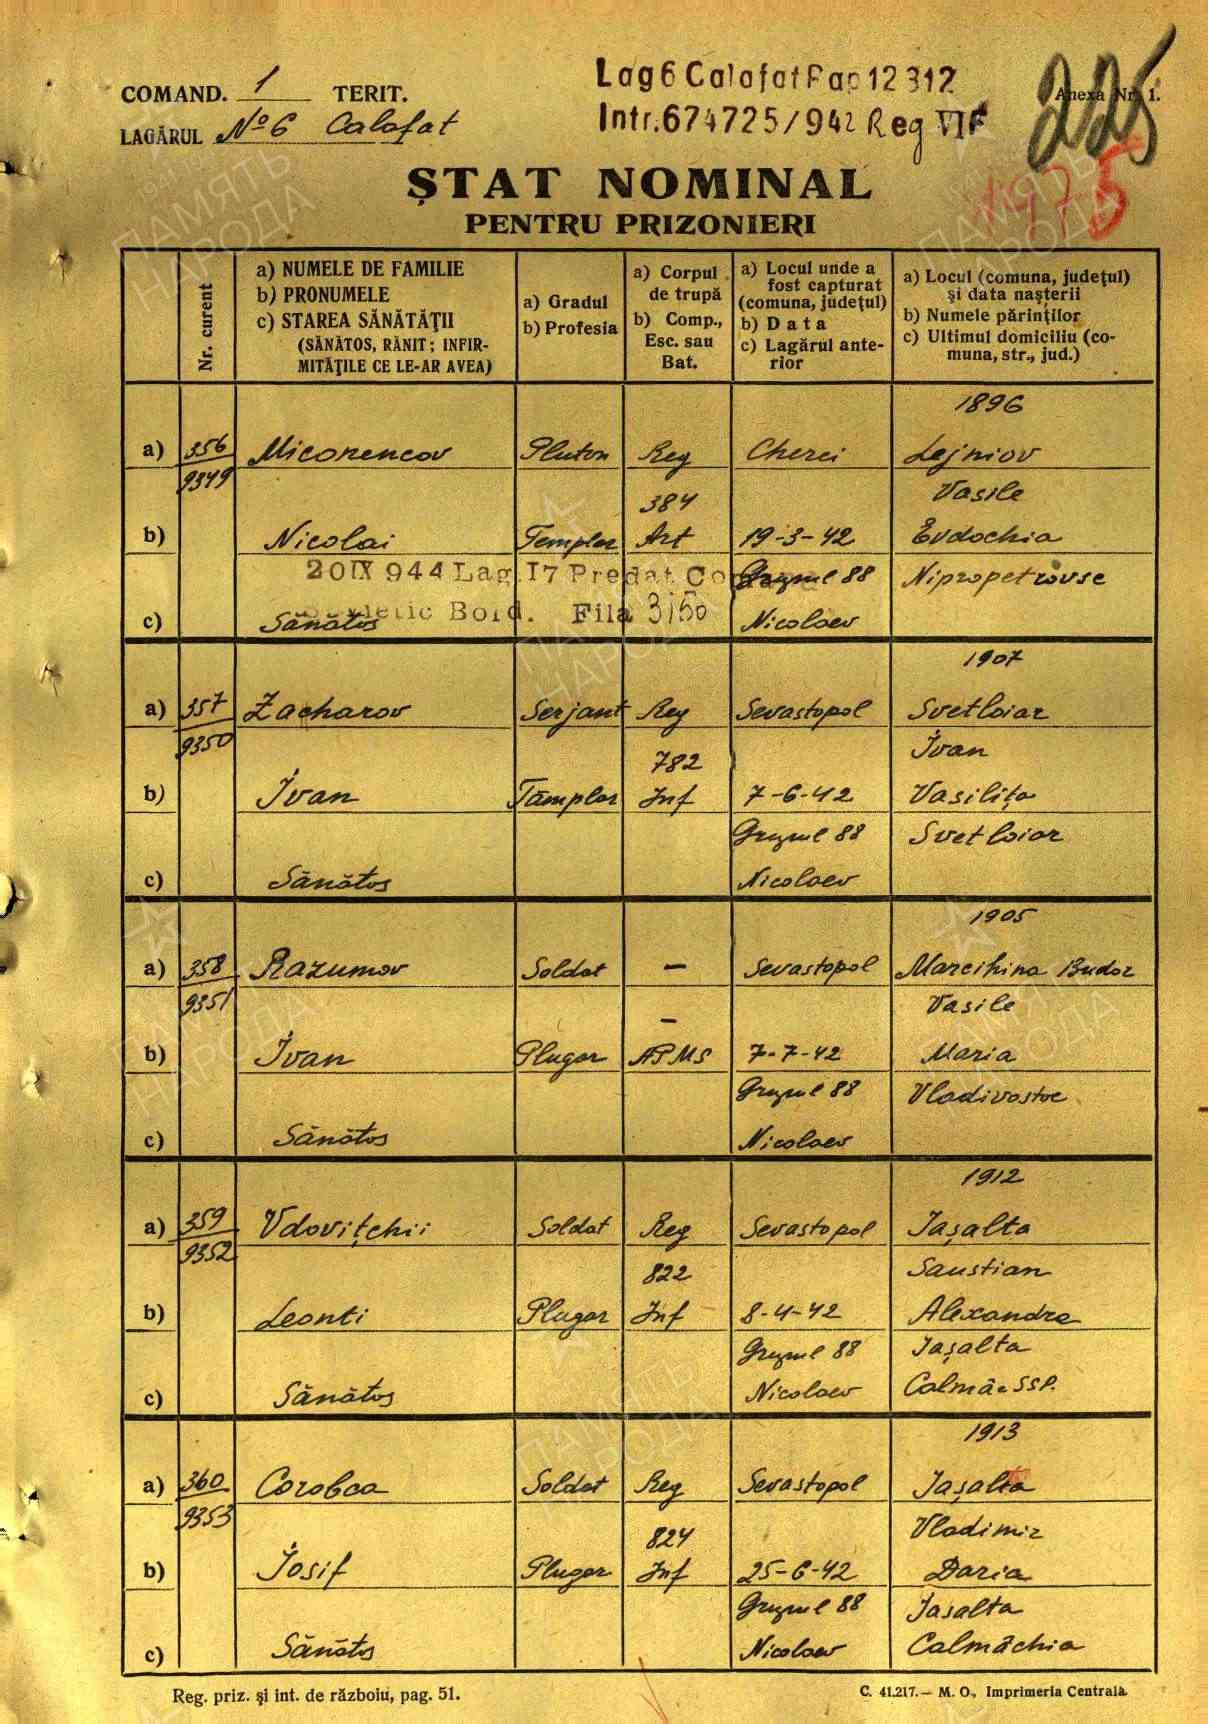 Lag 6 Calafat Pap 12312
COMAND. 1 TERIT.
Anexa Nr. 1.
225
Intr. 674725/942 Reg VII F
LAGĂRUL No 6 Calafat
1975
ȘTAT NOMINAL
PENTRU PRIZONIERI
Nr. curent
a) NUMELE DE FAMILIE
b) PRONUMELE
c) STAREA SĂNĂTĂȚII
(SĂNĂTOS, RĂNIT; INFIR-
MITĂȚILE CE LE-AR AVEA)
a) Gradul
b) Profesia
a) Corpul
de trupă
b) Comp.,
Esc. sau
Bat.
a) Locul unde a
fost capturat
(comuna, județul)
b) Data
c) Lagărul ante-
rior
a) Locul (comuna, județul)
și data nașterii
b) Numele părinților
c) Ultimul domiciliu (co-
muna, str., jud.)
1896
a) 356 Miconencov Pluton Reg Cherci Lejniov
9349
384 Vasile
b) Nicolai Templer Art 19-3-42 Evdochia
20 IX 944 Lag. 17 Predat Co
Grupul 88 Nipropetrovsc
Bord. Fila 3150
c) Sănătos Nicolaev
1907
a) 357 Zacharov Serjant Reg Sevastopol Svetloiar
9350
782 Ivan
b) Ivan Tâmplar Inf 7-6-42 Vasilița
Grupul 88 Svetloiar
c) Sănătos Nicolaev
1905
a) 358 Razumov Soldat — Sevastopol Marcihina Budor
9351
— Vasile
b) Ivan Plugar APMS 7-7-42 Maria
Grupul 88 Vladivostoc
c) Sănătos Nicolaev
1912
a) 359 Vdovițchii Soldat Reg Sevastopol Iașalta
9352
822 Saustian
b) Leonti Plugar Inf 8-4-42 Alexandra
Grupul 88 Iașalta
c) Sănătos Nicolaev Calmâc SSP.
1913
a) 360 Corobca Soldat Reg Sevastopol Iașalta
9353
824 Vladimir
b) Iosif Plugar Inf 25-6-42 Daria
Grupul 88 Iasalta
c) Sănătos Nicolaev Calmâchia
Reg. priz. și int. de războiu, pag. 51.
C. 41.217.— M. O., Imprimeria Centrală.
ПАМЯТЬ
НАРОДА